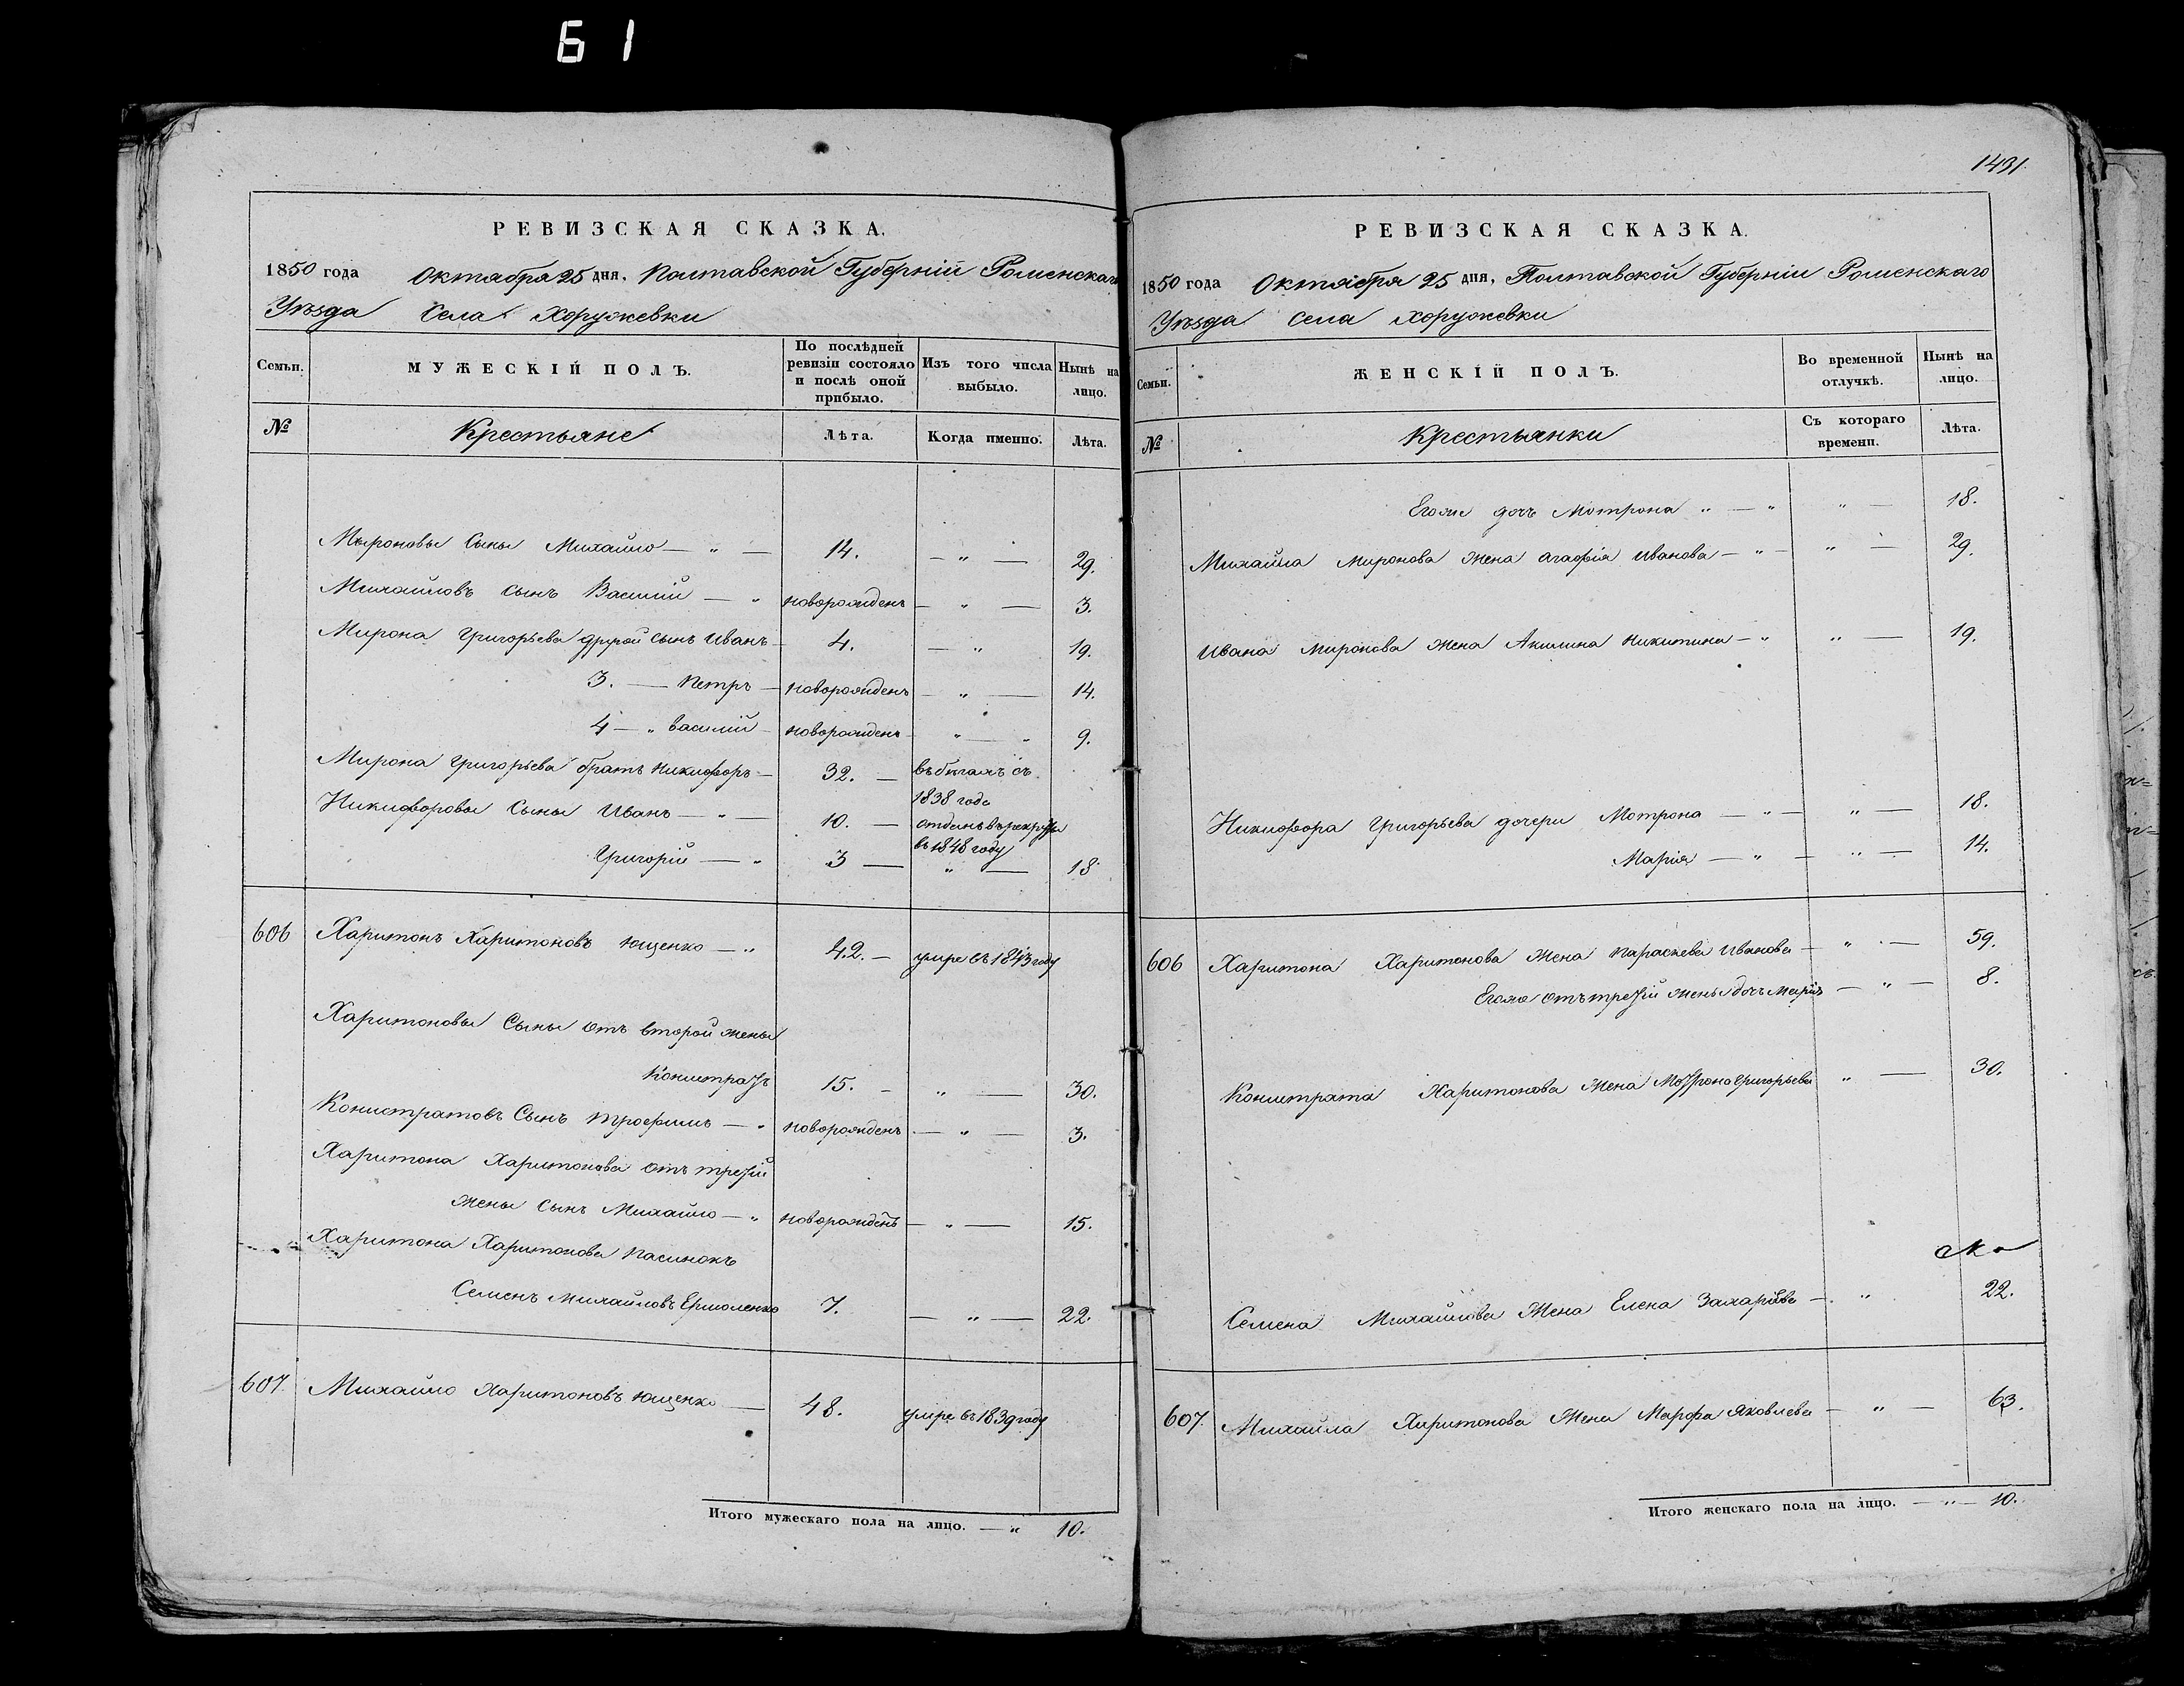 61
РЕВИЗСКАЯ СКАЗКА.
1850 года Октября 25 дня. Полтавской Губерніи Роменскаго
Уѣзда Села Хоружевки
Семьи.
МУЖЕСКІЙ ПОЛЪ.
По послѣдней ревизіи состояло и послѣ оной прибыло.
Изъ того числа выбыло.
Нынѣ на лицо.
№
Крестьяне
Лѣта.
Когда именно.
Лѣта.
Мыроновы Сыны Михайло — " — 14. — " — 29.
Михайловъ сынъ Василій — " новорожденъ — " — 3.
Мирона Григорьева другой сынъ Иванъ — 4. — " 19.
3. — Петръ — новорожденъ — " — 14.
4 — " Василій — новорожденъ — " — " 9.
Мирона Григорьева братъ Никифоръ — 32. — въ бегахъ съ
1838 года
Никифоровы Сыны Иванъ — " — 10. — отданъ въ рекруты
въ 1848 году
Григорій — " 3 — " — 18
606 Харитонъ Харитоновъ Ющенко — " 42. — умре въ 1843 году
Харитоновы Сыны отъ второй жены
Конистратъ 15. — " — 30.
Конистратовъ Сынъ Трофимъ — " новорожденъ — " — 3.
Харитона Харитонова отъ третій
жены сынъ Михайло — " новорожденъ — " — 15.
Харитона Харитонова пасинокъ
Семенъ Михайловъ Ермоленко 7. — " — 22.
607. Михайло Харитоновъ Ющенко — 48. умре въ 1839 году
Итого мужескаго пола на лицо. — " 10.
1431.
РЕВИЗСКАЯ СКАЗКА.
1850 года Октября 25 дня, Полтавской Губерніи Роменскаго
Уѣзда Села Хоружевки
Семьи.
ЖЕНСКІЙ ПОЛЪ.
Во временной отлучкѣ.
Нынѣ на лицо.
№
Крестьянки
Съ котораго времени.
Лѣта.
Егоже дочь Мотрона " — " " — 18.
Михайла Миронова жена Агафія Иванова — " — " — 29.
Ивана Миронова жена Акилина Никитина — " " — 19.
Никифора Григорьева дочери Мотрона — " — " — 18.
Марія — " — " — 14.
606 Харитона Харитонова жена Параскева Иванова — " — 59.
Егоже отъ третій жены дочь Марія — " — 8.
Конистрата Харитонова жена Мотрона Григорьева " — 30.
Семена Михайлова жена Елена Захаріева — " 22.
607. Михайла Харитонова жена Марфа Яковлева — " — 63.
Итого женскаго пола на лицо. — " — 10.